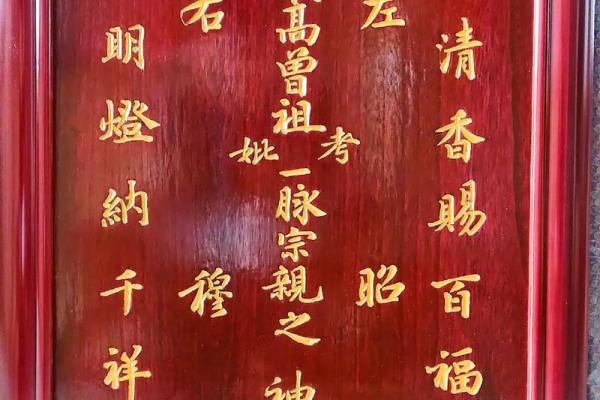 清香賜百福
左昭
考
高曾祖一脉宗親之神
妣
右穆
明燈納千祥